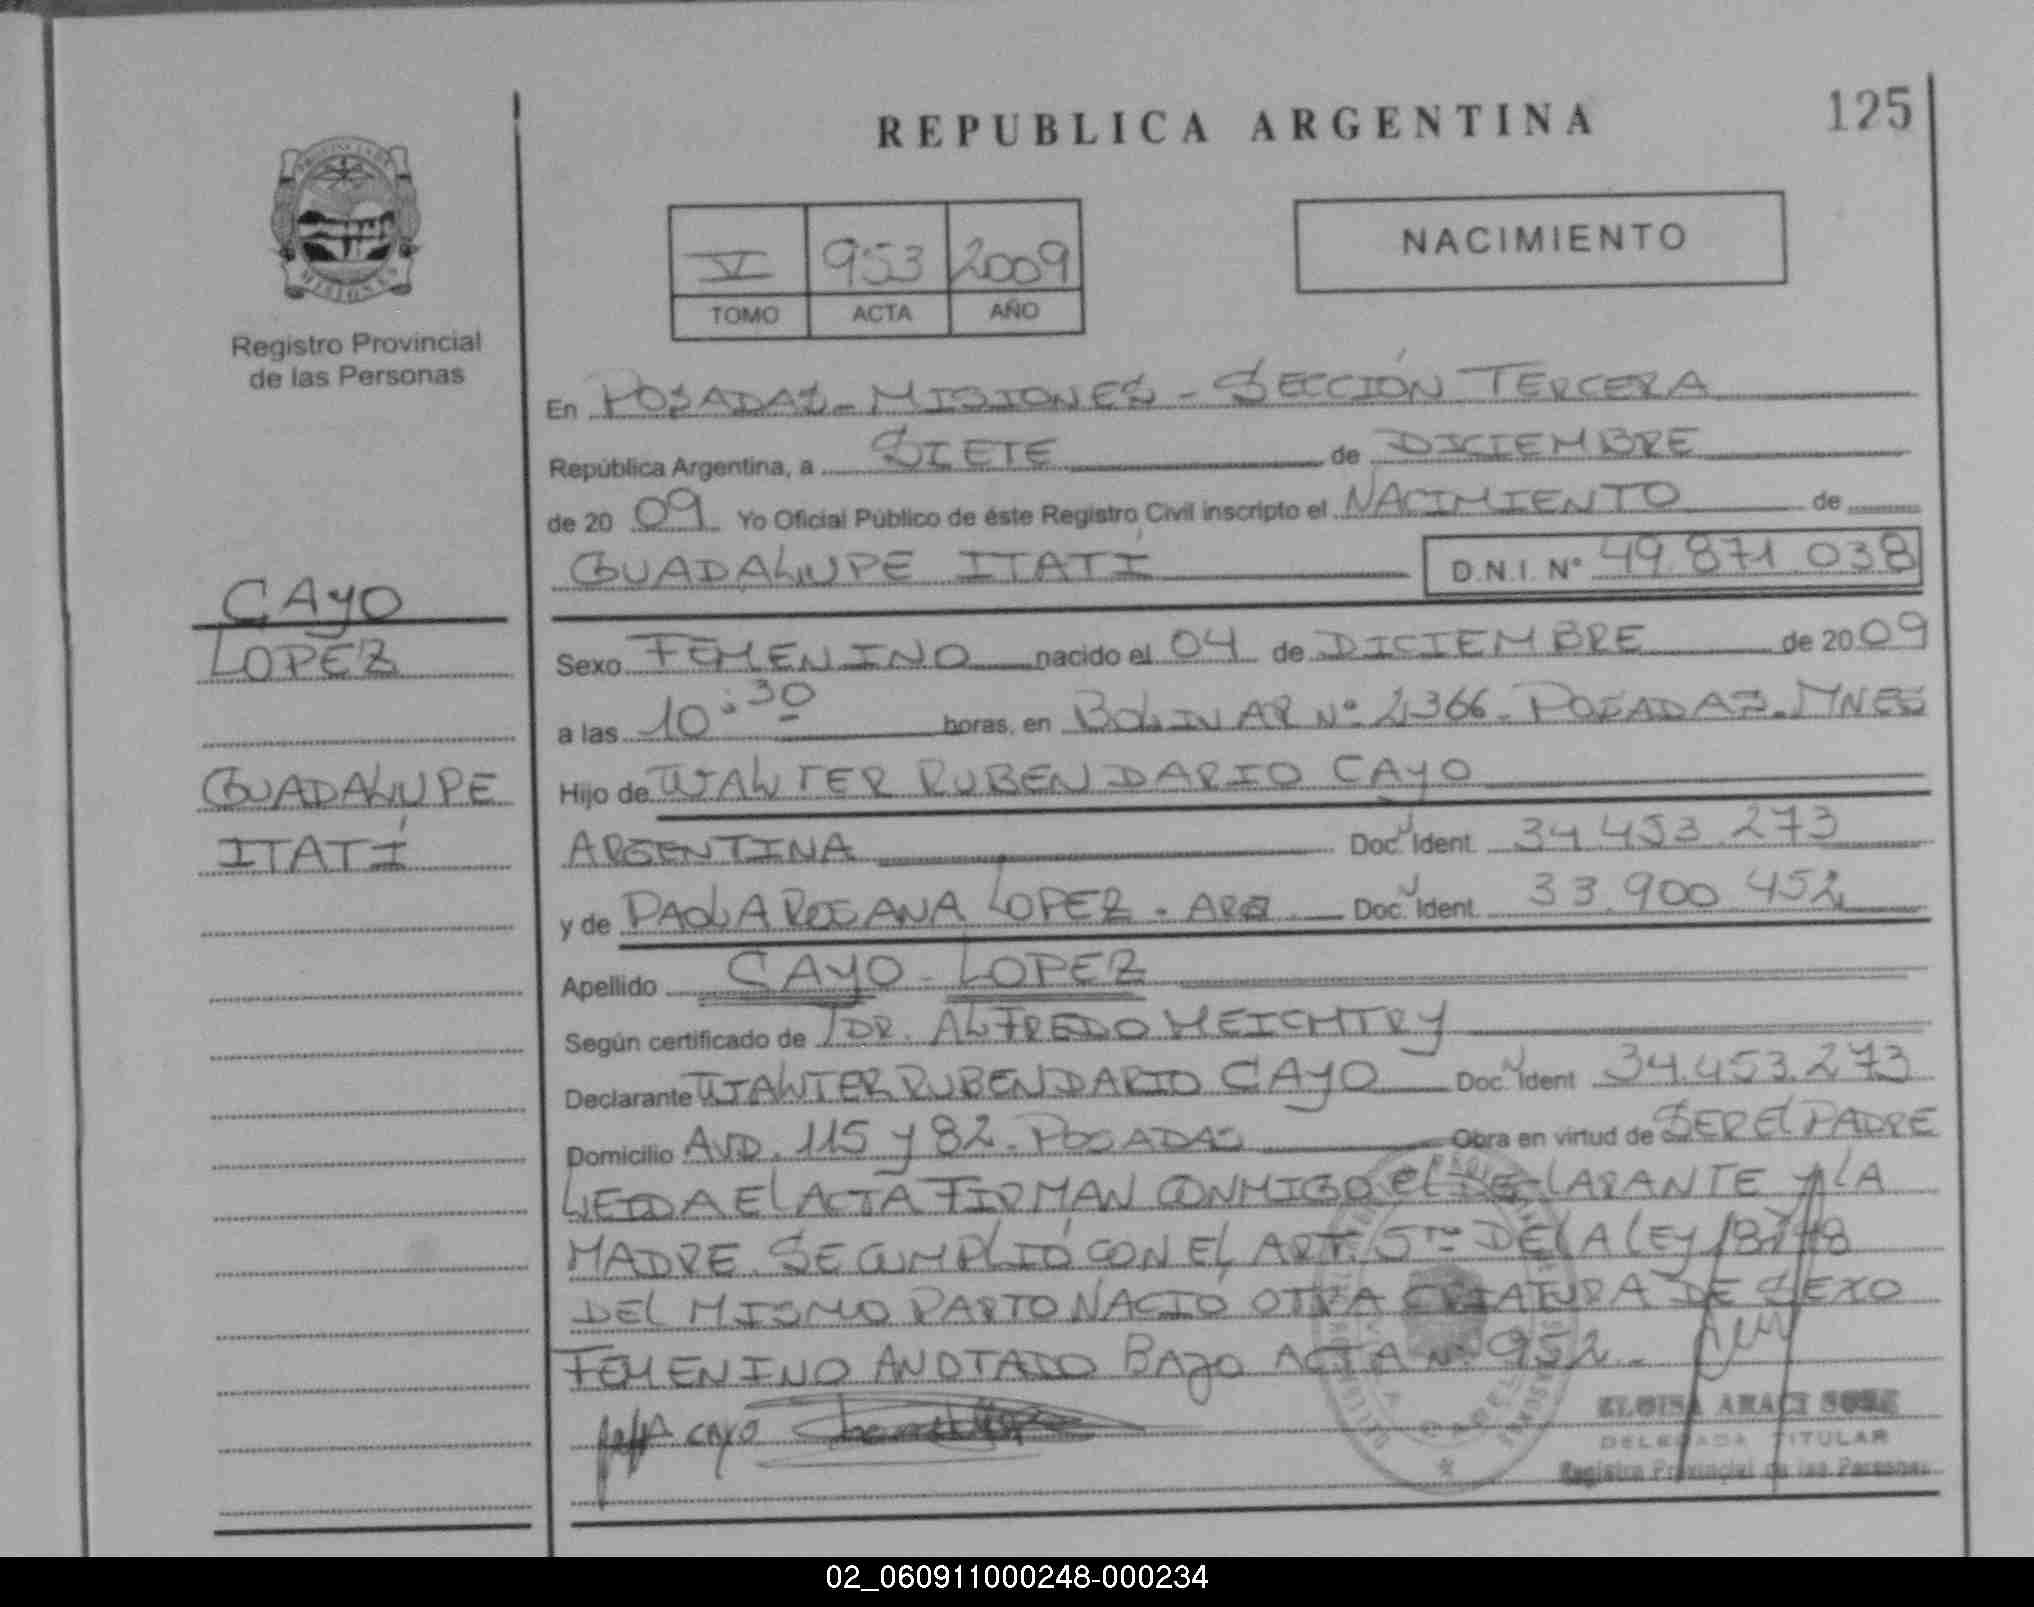 REPUBLICA ARGENTINA
125
PROVINCIA DE
MISIONES
Registro Provincial
de las Personas
V 953 2009
TOMO ACTA AÑO
NACIMIENTO
En POSADAS - MISIONES - SECCIÓN TERCERA
República Argentina, a SIETE de DICIEMBRE
de 20 09 Yo Oficial Público de éste Registro Civil inscripto el NACIMIENTO de
GUADALUPE ITATÍ D.N.I. Nº 49.871.038
CAYO
LOPEZ
GUADALUPE
ITATÍ
Sexo FEMENINO nacido el 04 de DICIEMBRE de 20 09
a las 10:30 horas, en BOLIVAR Nº 2366 - POSADAS - MNES
Hijo de WALTER RUBEN DARIO CAYO
ARGENTINA Doc. Ident. 34.453.273
y de PAOLA ROSANA LOPEZ - ARG Doc. Ident. 33.900.452
Apellido CAYO - LOPEZ
Según certificado de DR. ALFREDO MEICHTRY
Declarante WALTER RUBEN DARIO CAYO Doc. Ident 34.453.273
Domicilio AVD. 115 y 82 - POSADAS Obra en virtud de SER EL PADRE
LEIDA EL ACTA FIRMAN CONMIGO EL DECLARANTE y LA
MADRE. SE CUMPLIÓ CON EL ART. 5to DE LA LEY 18248
DEL MISMO PARTO NACIÓ OTRA CRIATURA DE SEXO
FEMENINO ANOTADO BAJO ACTA Nº 952 -
CAYO
ELOISA ARACI
DELEGADA TITULAR
Registro Provincial de las Personas
02_060911000248-000234